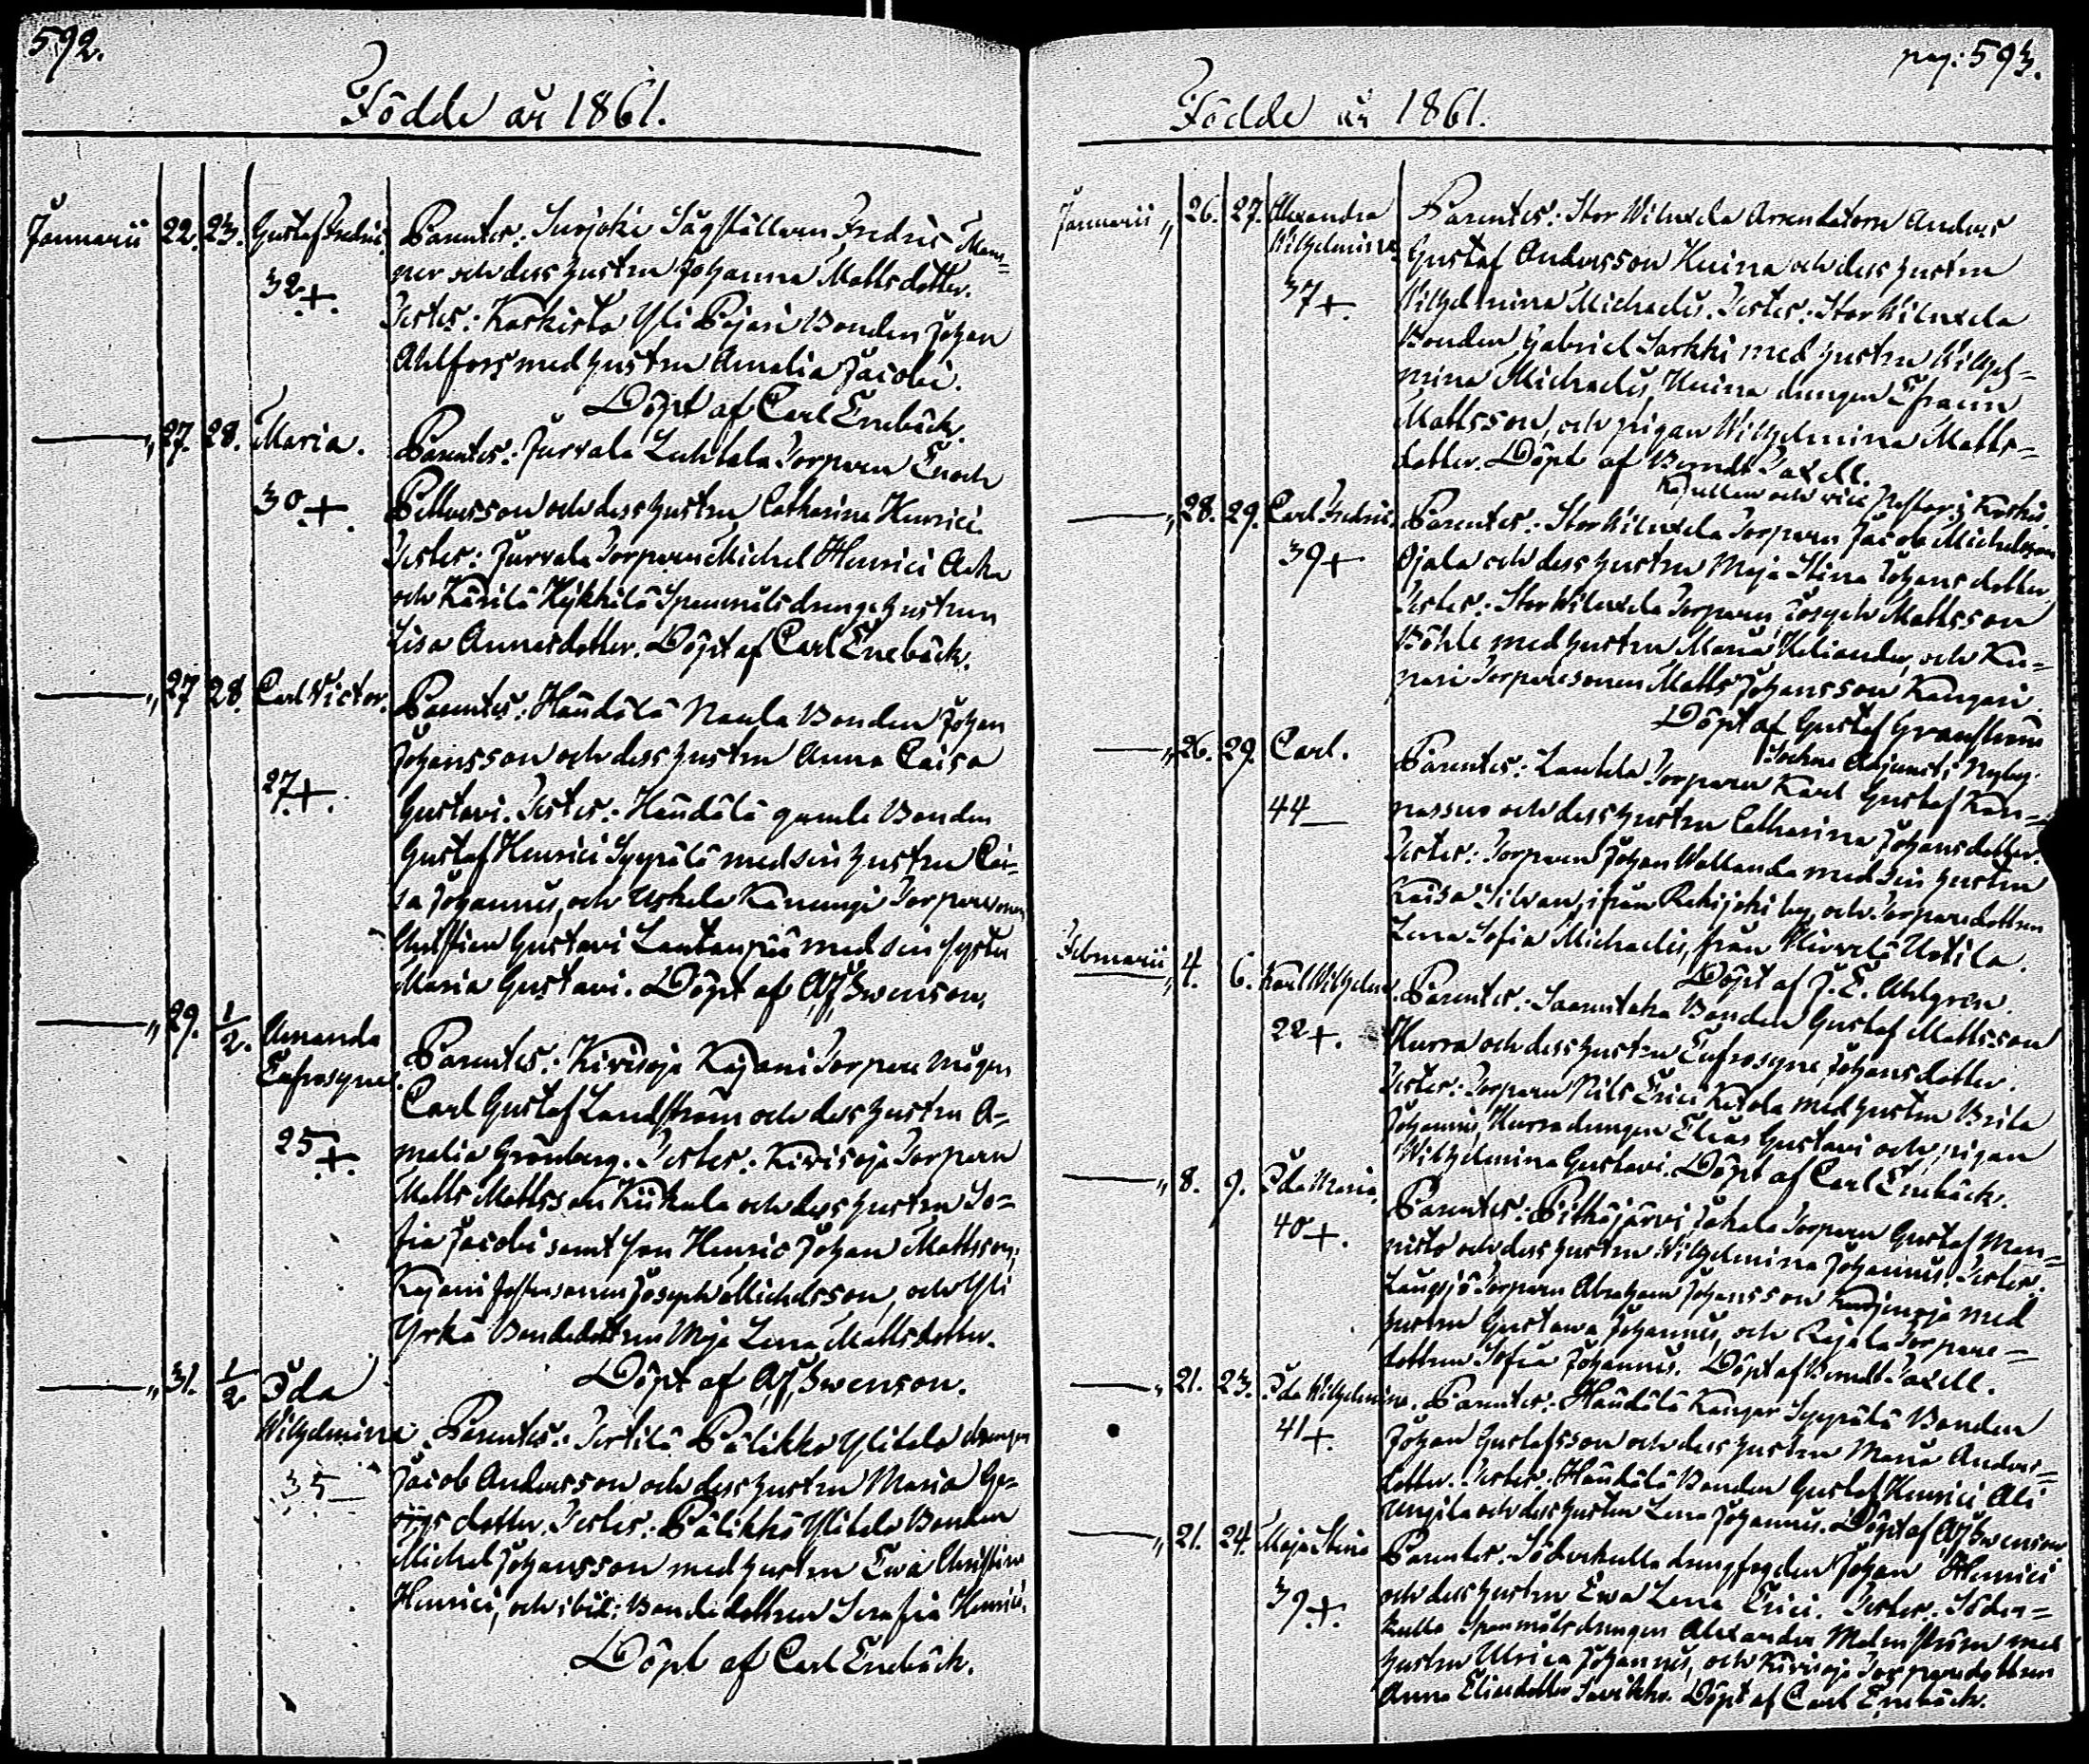 592.
Födde år 1861.
Januarii 22. 23. Gustaf Fredric.
32+.
Parentes: Surjoki Sågställaren Fredric Man=
ner och dess hustru Johanna Mattsdotter.
Testes: Koskisto Yli Pajari Bonden Johan
Ahlfors med hustru Amalia Jacobi.
Döpt af Carl Enebäck.
" 27. 28. Maria.
30+.
Parentes: Jurvala Luhtala Torparen Enoch
Pettersson och dess hustru Catharina Henrici.
Testes: Jurvala Torparen Michel Henrici
och Kärilä Hykkilä Spanmålsdrengs hustrun
Lisa Annasdotter. Döpt af Carl Enebäck.
" 27 28. Carl Victor.
27+.
Parentes: Händälä Naula Bonden Johan
Johansson och dess hustru Anna Caisa
Gustavi. Testes: Händälä gamle Bonden
Gustaf Henrici Syypälä med sin hustru Cai=
sa Johannis, och Uskela Kanungi Torparesonen
Gustavi Lautanpää med sin syster
Maria Gustavi. Döpt af Swenson.
" 29. 1/2. Amanda
Eufrosyne.
25+.
Parentes: Kivisoja Kajani Torpare mågen
Carl Gustaf Landström och dess hustru A=
malia Grönberg. Testes: Kivisoja Torparen
Matts Mattsson Kiikala och dess hustru So=
fia Jacobi samt son Henric Johan Mattsson,
Kajani Joseph Michelsson, och Yli
Yrkä Bondedottren Maja Lena Mattsdotter.
Döpt af Swenson.
" 31. 1/2. Ida
Wilhelmina
35
Parentes: Terttilä Pälikkö Ylitalo drengen
Jacob Andersson och dess hustru Maria Ge=
orgsdotter. Testes: Pälikkö Ylitalo Bonden
Michel Johansson med hustru Ewa Christina
Henrici, och ibid: Bondedottren Serafia Henrici.
Döpt af Carl Enebäck.
pag: 593.
Födde år 1861.
Januarii " 26. 27. Alexandra
Wilhelmina.
37+.
Parentes: Stor Wiluxela Arrendatorn Anders
Gustaf Andersson Huina och dess hustru
Wilhelmina Michaelis. Testes: Stor Wiluxela
Bonden Gabriel Sarkki med hustru Wilhel=
mina Michaelis, Huina drengen Efraim
Mattsson, och pigan Wilhelmina Matts=
dotter. Döpt af Berndt Paxell.
Kapellan och vice Pastor i Koskis.
" 28. 29. Carl Fredric.
39+
Parentes: Stor Wiluxela Torparen Jacob Michelsson
Ojala och dess hustru Maja Stina Johansdotter
Testes: Stor Wiluxela Torparen Joseph Mattsson
Böhle med hustru Maria Heliander, och Ku=
nari Torparesonen Matts Johansson Kangari.
Döpt af Gustaf Granström
Sockne Adjunct i Nyby.
" 26. 29. Carl.
44
Parentes: Lautela Torparen Karl Gustaf Kan=
nassuo och dess hustru Catharina Johansdotter.
Testes: Torparen Johan Wallanda med sin hustru
Kaisa Silvan, ifrån Rekijoki by, och Torparedottren
Lena Sofia Michaelis, från Hirvelä Uotila.
Döpt af J. E. Ahlgren.
Februarii " 4. 6. Karl Wilhelm.
22+.
Parentes: Saarentaka Bonden Gustaf Mattsson
Hurra och dess hustru Eufrosyne Johansdotter.
Testes: Torparen Nils Erici Ketola med hustru Brita
Johannis, Hurra drengen Elias Gustavi och pigan
Wilhelmina Gustavi. Döpt af Carl Enebäck.
" 8. 9. Ida Maria.
40+.
Parentes: Pitkäjärvi Jakala Torparen Gustaf Man=
nisto och dess hustru Wilhelmina Johannis. Testes:
Långsjö Torparen Abraham Johansson med
hustru Gustawa Johannis, och Rajala Torpare=
dottren Sofia Johannis. Döpt af Berndt Paxell.
" 21. 23. Ida Wilhelmina.
41+.
Parentes: Händälä Kangar Syypälä Bonden
Johan Gustafsson och dess hustru Maria Anders=
dotter. Testes: Händälä Bonden Gustaf Henrici Ali
Ungila och dess hustru Lena Johannis. Döpt af Swenson
" 21. 24. Maja Stina
39+.
Parentes: Söderkulla drengfogden Johan Henrici
och dess hustru Ewa Lena Erici. Testes: Söder=
kulla Spanmålsdrengen Alexander Malmström med
hustru Ulrica Johannis, och Kivisoja Torparedottren
Anna Eliasdotter Savikko. Döpt af Carl Enebäck.